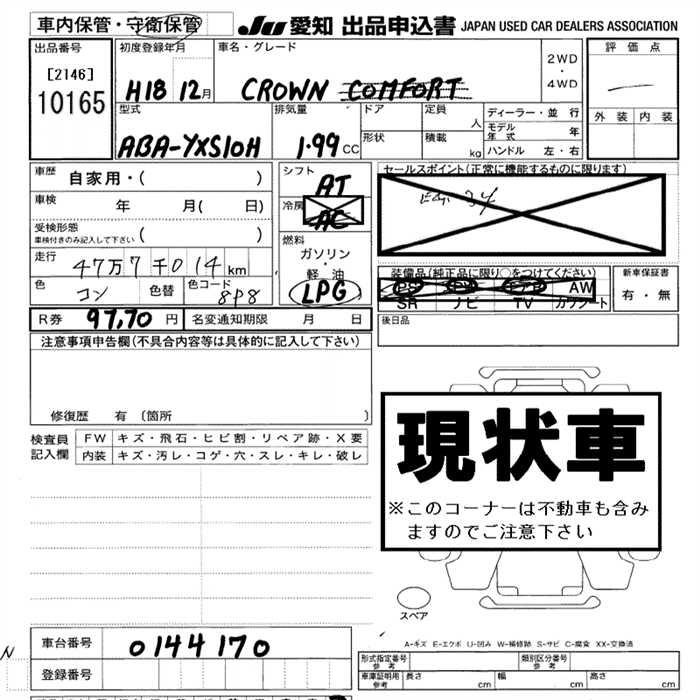 車内保管・守衛保管
JU 愛知 出品申込書 JAPAN USED CAR DEALERS ASSOCIATION
出品番号
[2146]
10165
初度登録年月
H18 12月
車名・グレード
CROWN COMFORT
2WD
・
4WD
評価点
外装 内装
型式
ABA-YXS10H
排気量
1.99 CC
ドア
形状
定員
人
積載
kg
ディーラー・並行
モデル年式 年
ハンドル 左・右
車歴
自家用・( )
車検
年 月( 日)
受検形態
車検付きのみ記入して下さい ( )
走行
47万7千014km
色
コン
色替
色コード
8P8
シフト
AT
冷房
AC
燃料
ガソリン
・
軽油
LPG
セールスポイント(正常に機能するものに限ります)
装備品(純正品に限り○をつけてください)
PS PW AW
SR ナビ TV カワシート
新車保証書
有・無
R券 97,70 円
名変通知期限 月 日
後日品
注意事項申告欄(不具合内容等は具体的に記入して下さい)
修復歴 有 (箇所 )
検査員
記入欄
FW キズ・飛石・ヒビ割・リペア跡・X要
内装 キズ・汚レ・コゲ・穴・スレ・キレ・破レ
現状車
※このコーナーは不動車も含み
ますのでご注意下さい
スペア
A-キズ E-エクボ U-凹み W-補修跡 S-サビ C-腐食 XX-交換済
車台番号
0144170
登録番号
N
形式指定番号
参考
類別区分番号
参考
車庫証明用
参考
長さ cm
幅 cm
高さ cm